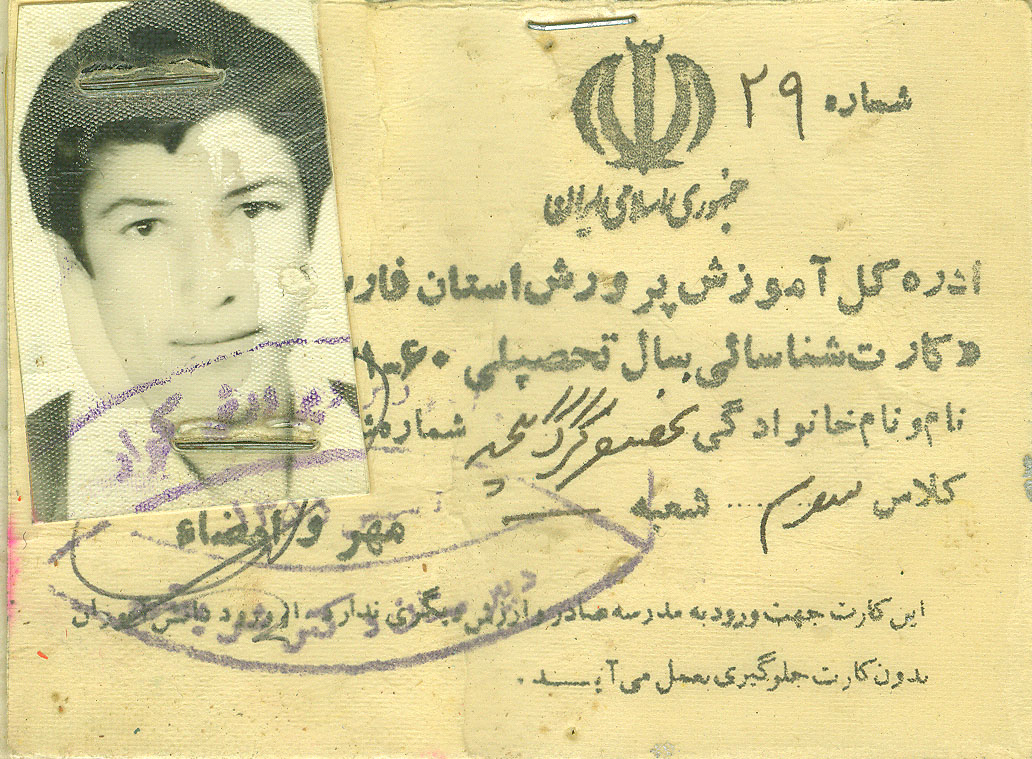 شماره ۲۹
جمهوری اسلامی ایران
اداره کل آموزش پرورش استان فارس
«کارت شناسائی بسال تحصیلی ۶۰-
نام و نام خانوادگی شماره
کلاس سوم .... شعبه —
مهر و امضاء
این کارت جهت ورود به مدرسه صادر و ارزش دیگری ندارد از ورود دانش آموزان
بدون کارت جلوگیری بعمل می آید.